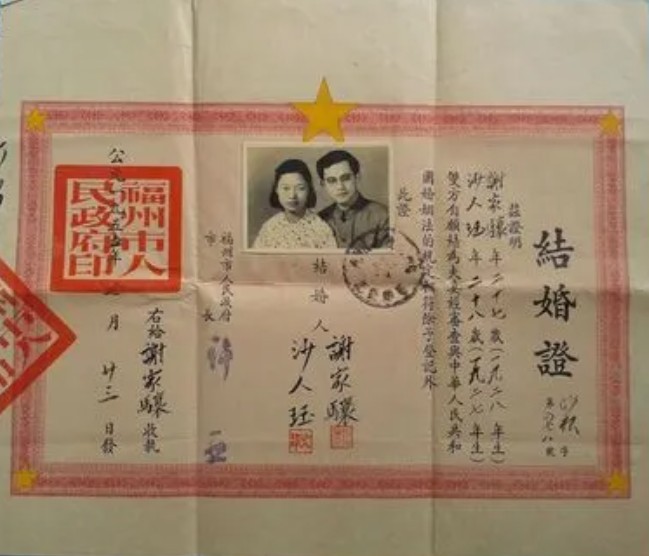 結婚證
字
號
茲證明
謝家驤 年二十七歲(一九二八年生)
沙人珏 年二十八歲(一九二七年生)
雙方自願結為夫妻經審查與中華人民共和
國婚姻法的規定相符除予登記外
此證
謝家驤
結婚人
沙人珏
福州市人民政府
市長
右給謝家驤收執
公元一九五五年 月廿三日發
福州市人
民政府印